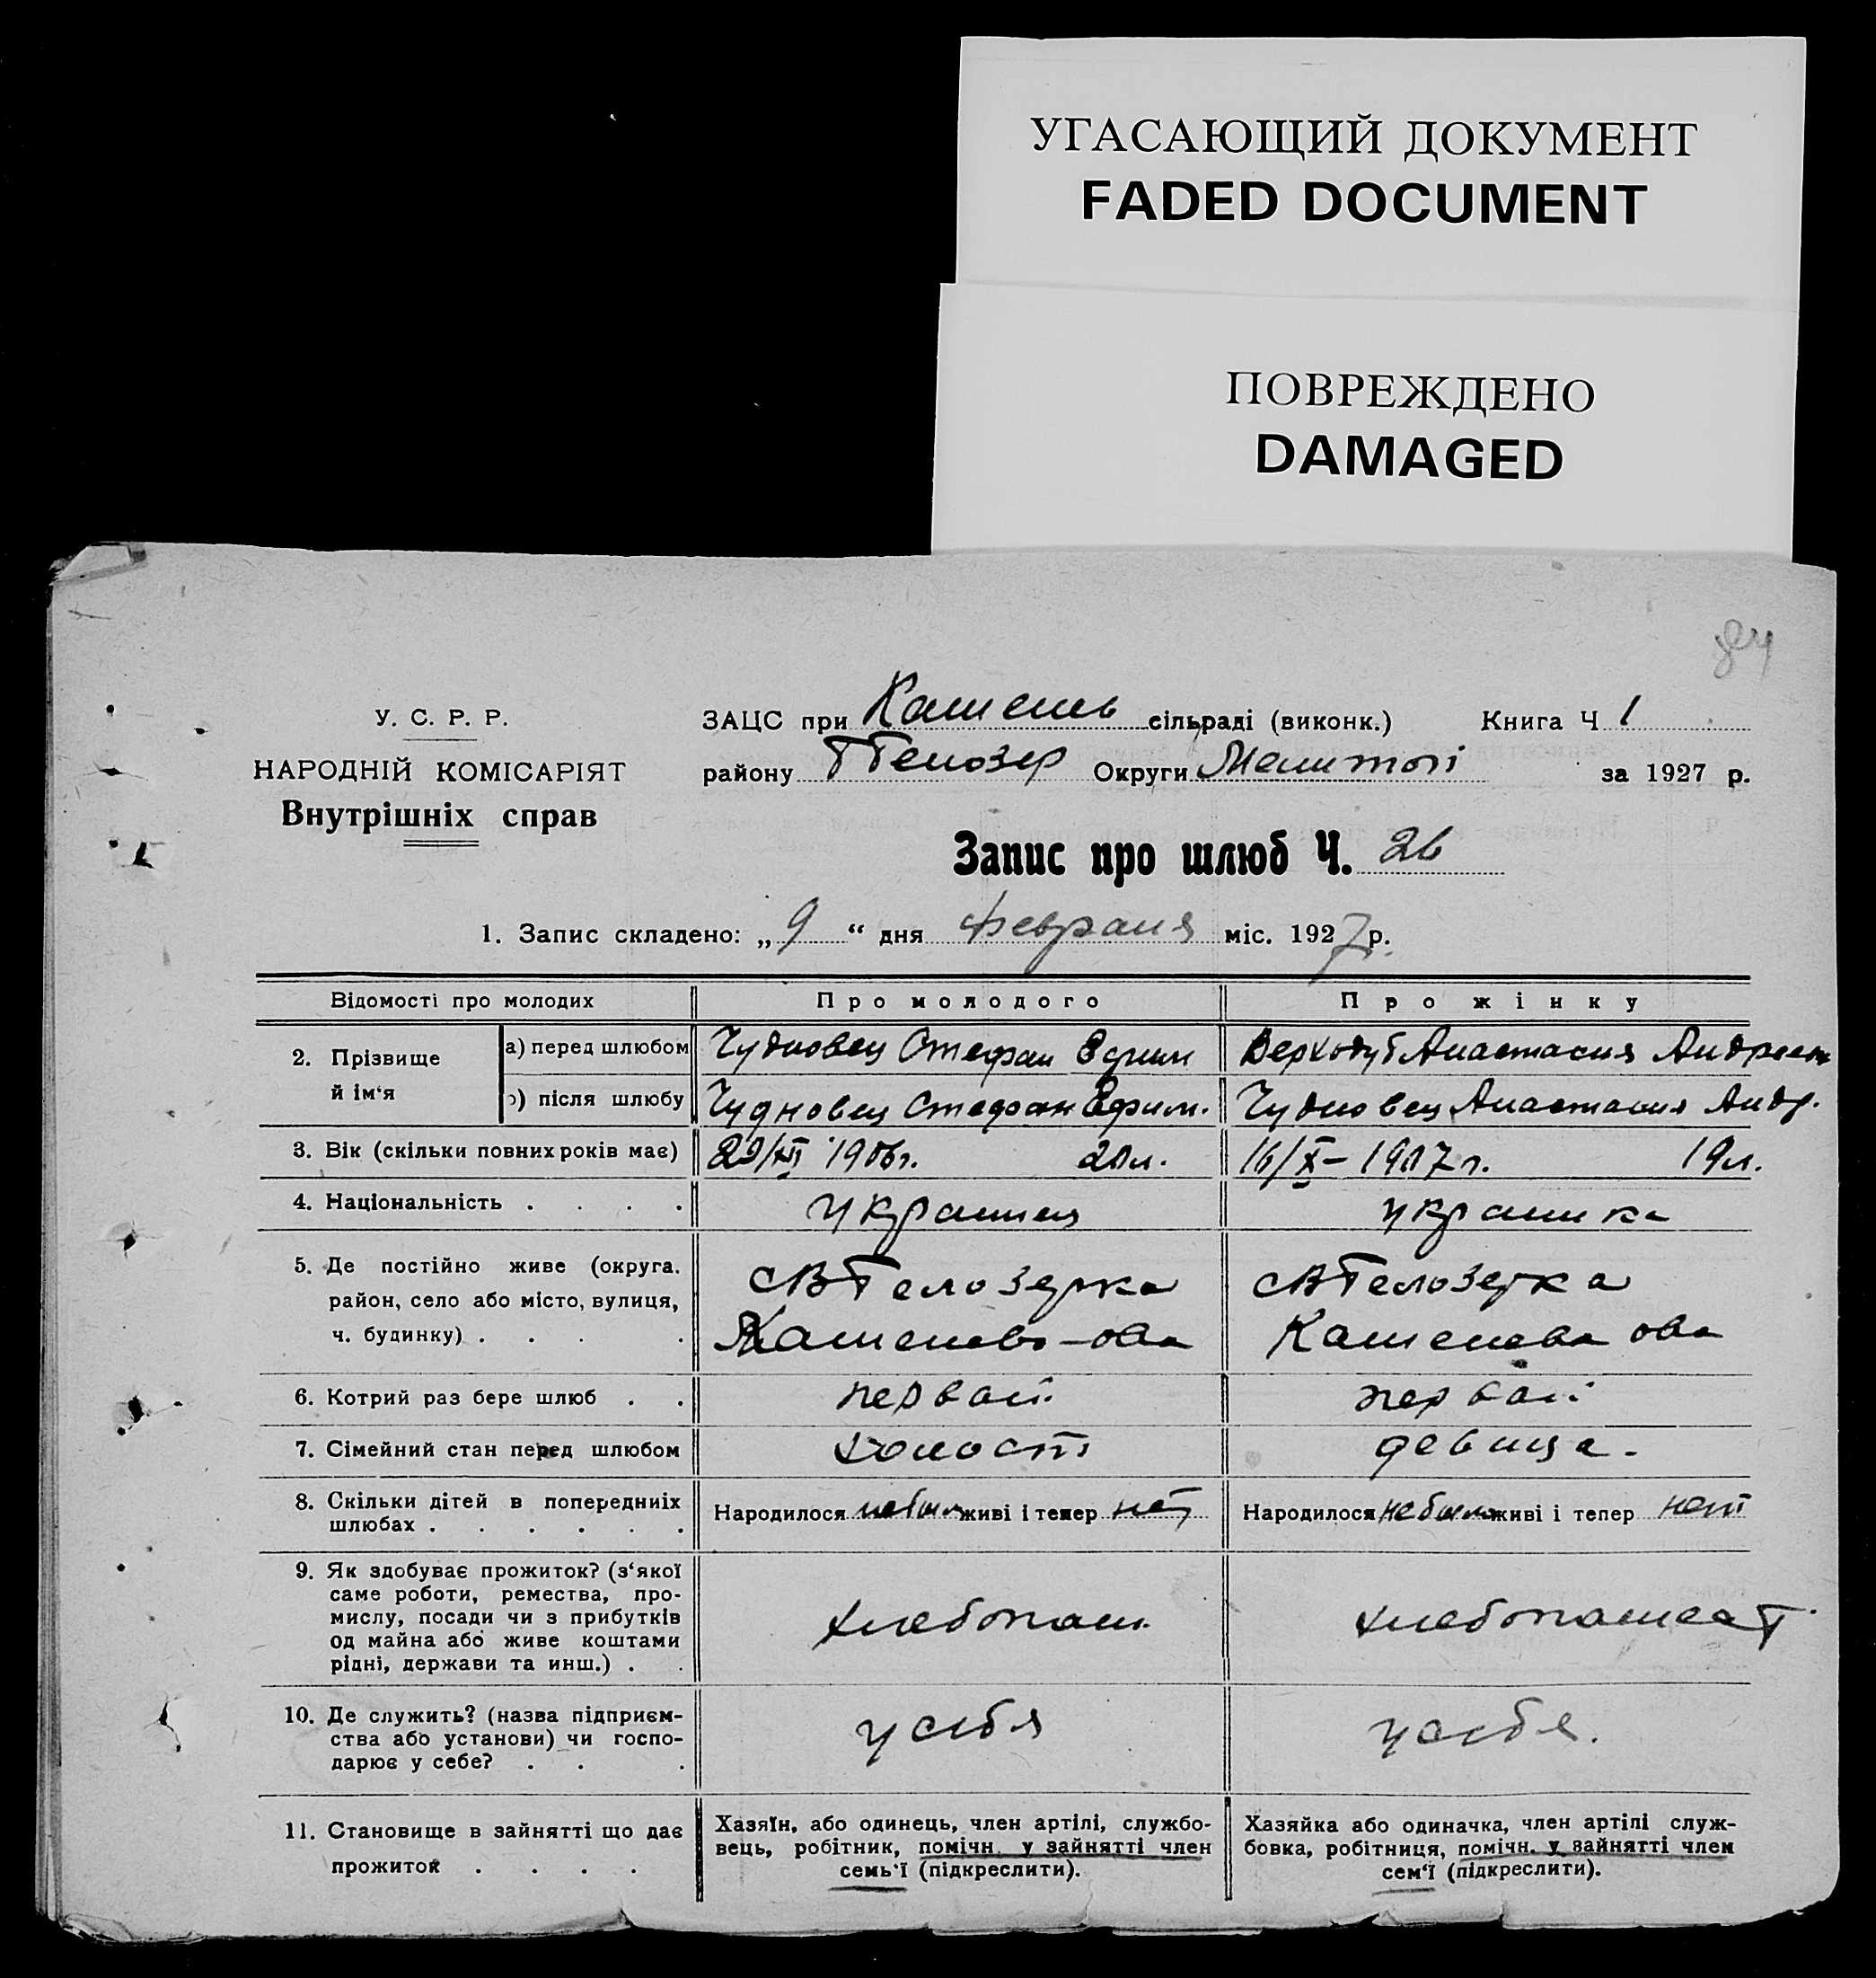 УГАСАЮЩИЙ ДОКУМЕНТ
FADED DOCUMENT
ПОВРЕЖДЕНО
DAMAGED
84
У. С. Р. Р.
НАРОДНІЙ КОМІСАРІЯТ
Внутрішніх справ
ЗАЦС при Камень сільраді (виконк.) Книга Ч 1
району Белозер Округи Мелитоп за 1927 р.
Запис про шлюб Ч. 26
1. Запис складено: „9“ дня февраля міс. 1927 р.
Відомості про молодих Про молодого Про жінку
2. Прізвище й ім‘я
а) перед шлюбом Чудновец Стефан Ефим Верходуб Анастасия Андреев
б) після шлюбу Чудновец Стефан Ефим. Чудновец Анастасия Андр.
3. Вік (скільки повних років має) 29/XII 1906г. 20л. 16/X – 1907 г. 19л.
4. Національність . . . . украинец украинка
5. Де постійно живе (округа. район, село або місто, вулиця, ч. будинку) . . . .
Белозерка Белозерка
6. Котрий раз бере шлюб . . первый первый
7. Сімейний стан перед шлюбом холост девица.
8. Скільки дітей в попередниіх шлюбах . . . . . .
Народилося небыл живі і тепер нет Народилося небыл живі і тепер нет
9. Як здобуває прожиток? (з‘якої
саме роботи, ремества, про-
мислу, посади чи з прибутків
од майна або живе коштами
рідні, держави та инш.) . .
хлебопаш.
10. Де служить? (назва підприєм-
ства або установи) чи госпо-
дарює у себе? . . .
у себя у себя.
11. Становище в зайнятті що дає
прожиток . . . .
Хазяїн, або одинець, член артілі, службо-
вець, робітник, помічн. у зайнятті член
семь‘ї (підкреслити).
Хазяйка або одиначка, член артілі служ-
бовка, робітниця, помічн. у зайнятті член
сем‘ї (підкреслити).